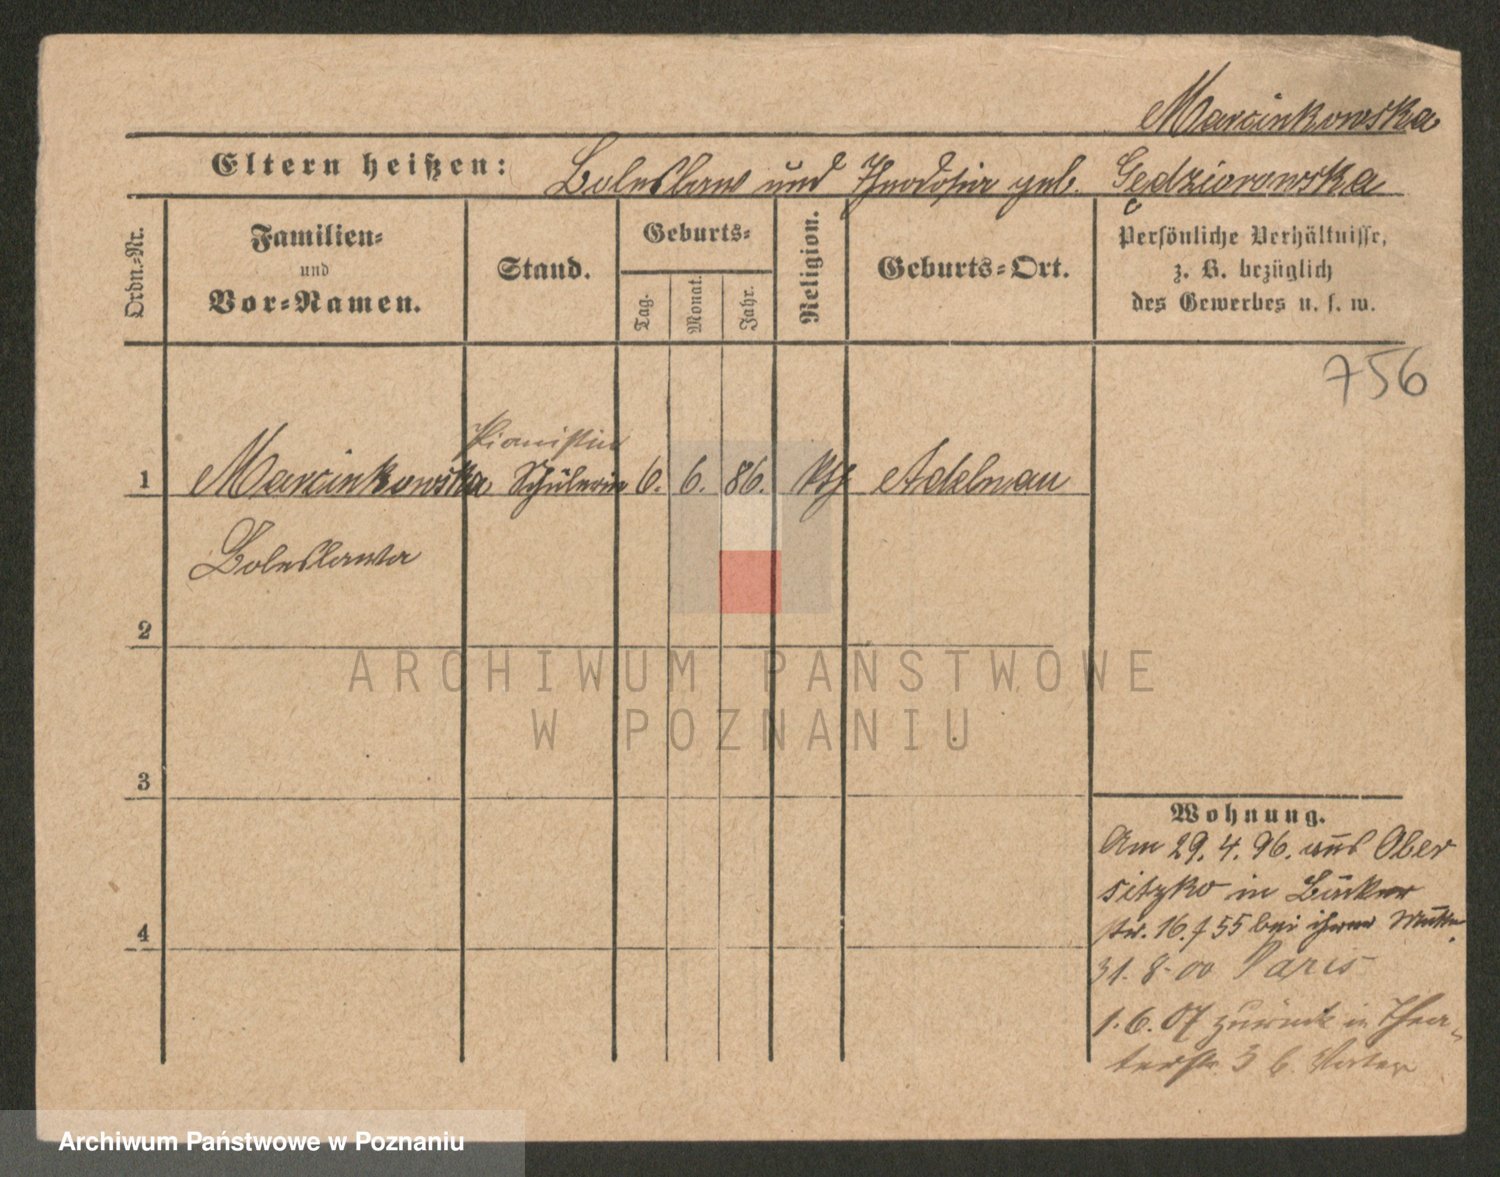 Marcinkowska
Eltern heißen: Boleslaw und Theodosia geb. Gędziorowska
Ordn.-Nr.
Familien-
und
Vor-Namen.
Stand.
Geburts-
Tag.
Monat.
Jahr.
Religion.
Geburts-Ort.
Persönliche Verhältnisse,
z. B. bezüglich
des Gewerbes u. s. w.
756
Pianistin
1 Marcinkowska Schülerin 6. 6. 86. kth Adelnau
Boleslawa
2
ARCHIWUM PAŃSTWOWE
W POZNANIU
3
4
Wohnung.
Am 29. 4. 96. aus Ober
sitzko in Bäcker
str. 16. f 55 bei ihrer Mutter
31. 8. 00 Paris
1. 6. 07 zurück in Thea-
terstr. 3 b.
Archiwum Państwowe w Poznaniu